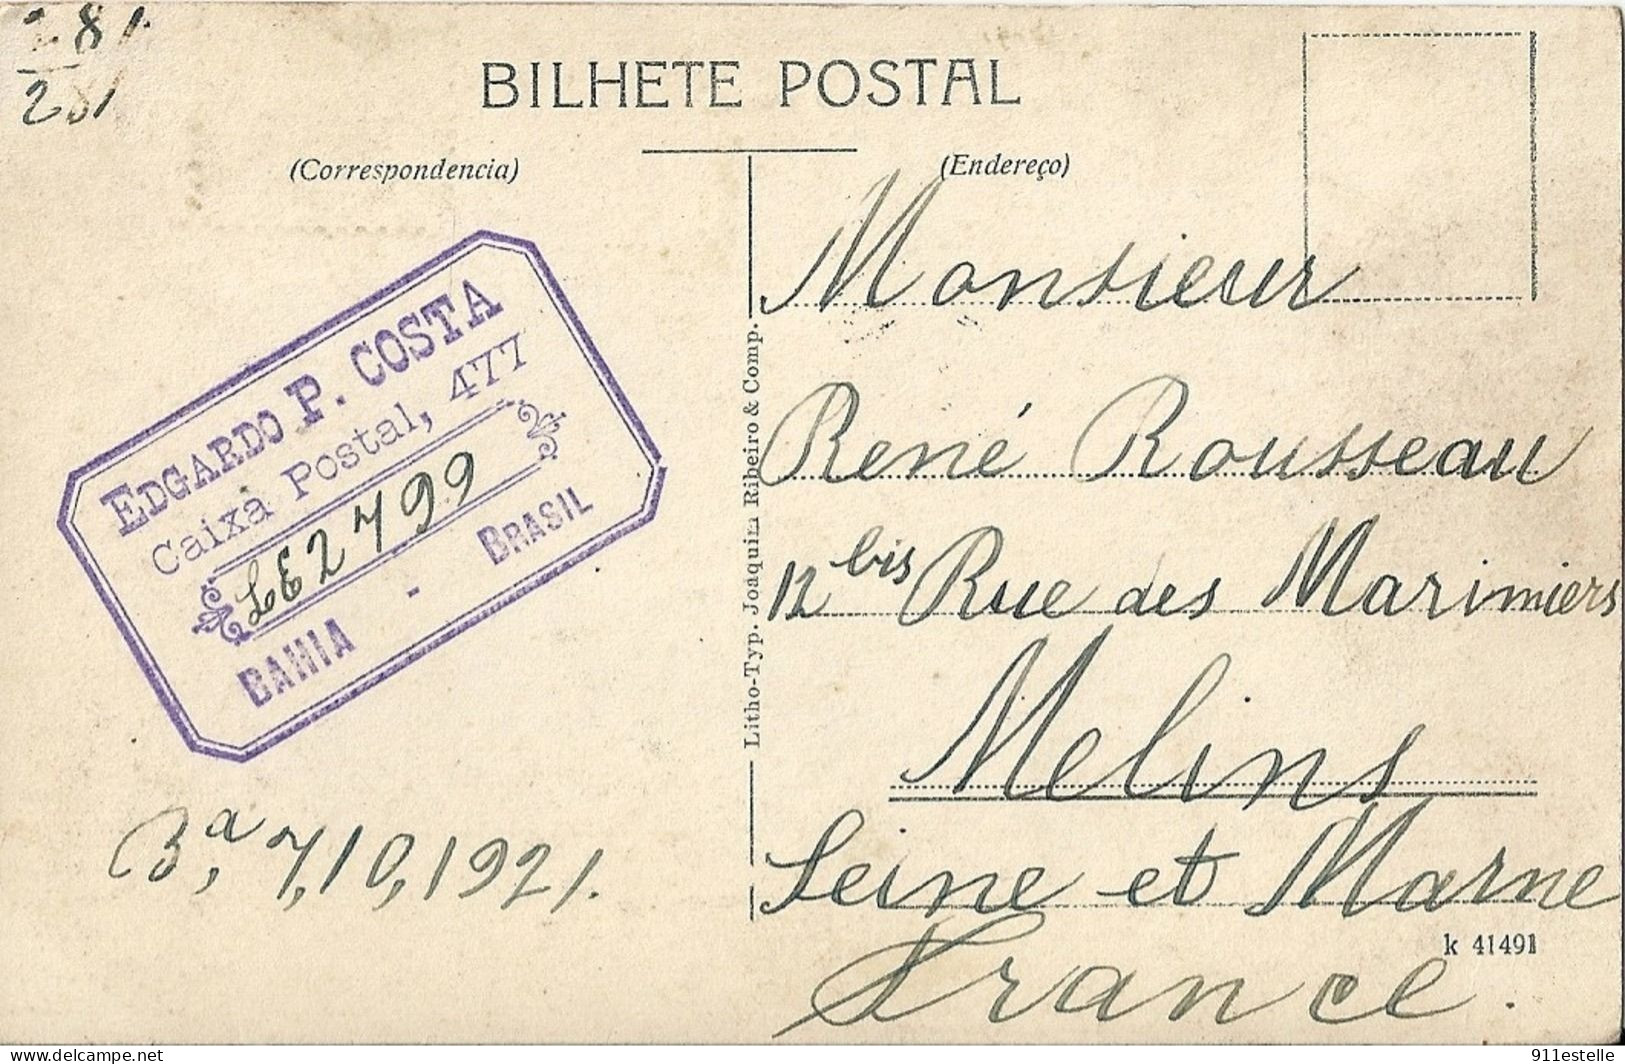 281
281
BILHETE POSTAL
(Correspondencia)
(Endereço)
EDGARDO P. COSTA
Caixa Postal, 477
LE2799
BAHIA - BRASIL
Bª, 7,10,1921.
Litho-Typ. Joaquim Ribeiro & Comp.
Monsieur
René Rousseau
12 bis Rue des Marimiers
Melins
Seine et Marne
France.
k 41491
delcampe.net
911estelle